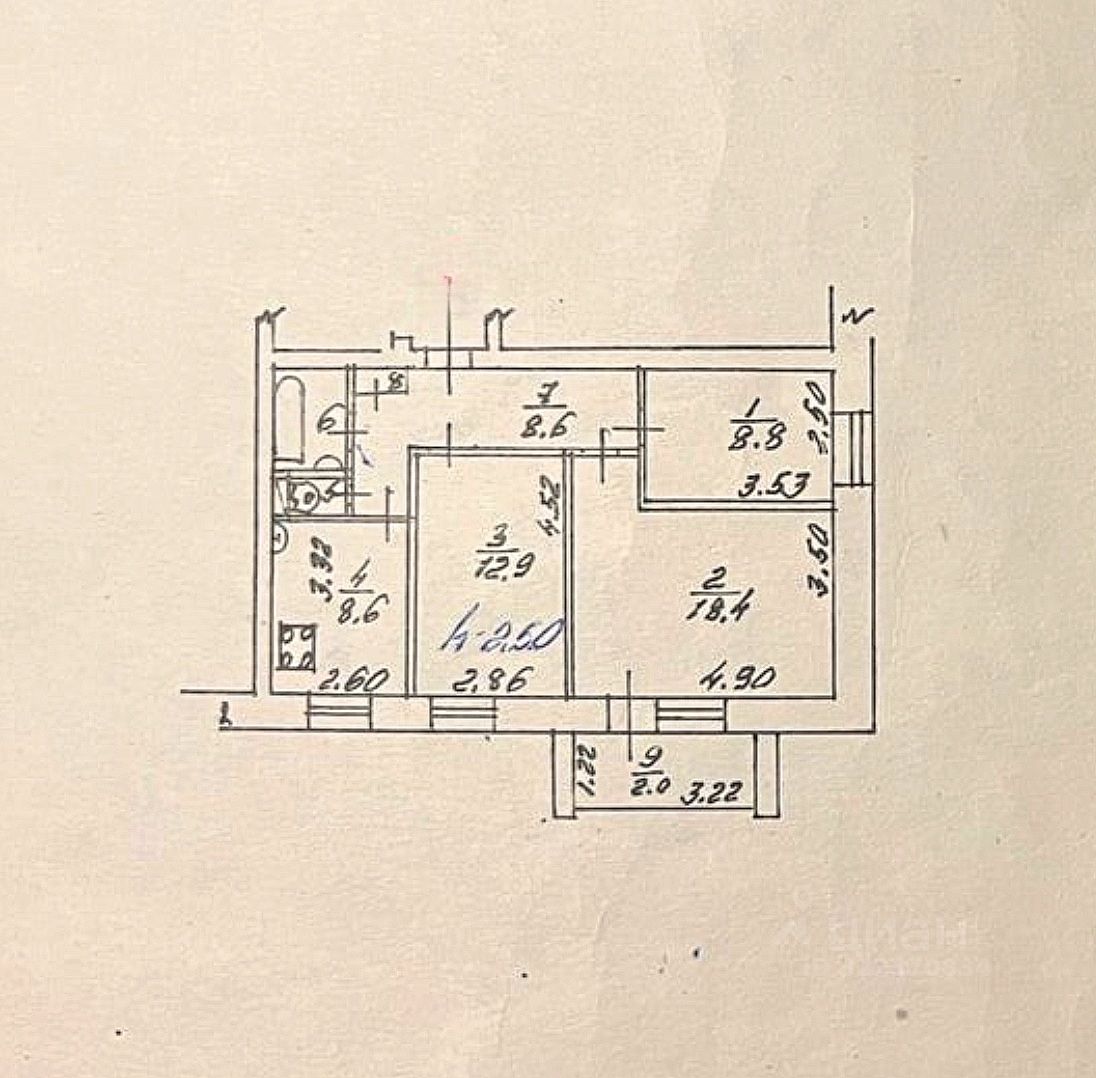 8
7
8.6
6
1
8.8
2.50
3.53
5
4.52
3
12.9
3.32
4
8.6
2
18.4
3.50
h-2.50
2.60
2.86
4.90
1.22
9
2.0
3.22
циан